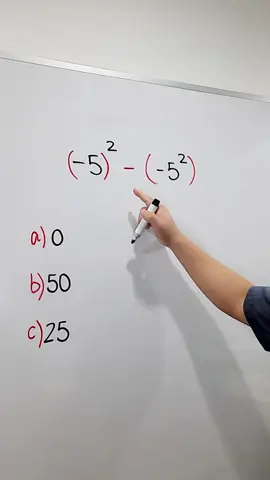 (-5)² - (-5²)
a) 0
b) 50
c) 25